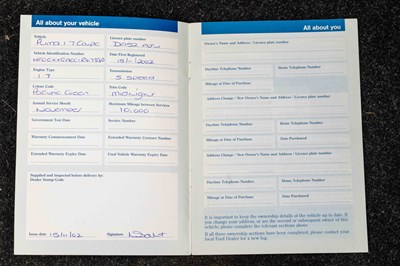 All about your vehicle
Vehicle
Licence plate number
Puma 1.7 Coupe
Vehicle Identification Number
Date First Registered
15/11/2002
Engine Type
Transmission
1.7
5 SPEED
Colour Code
Trim Code
Pacific Green
Midnight
Annual Service Month
Maximum Mileage between Services
November
10,000
Government Test Date
Service Number
Warranty Commencement Date
Extended Warranty Contract Number
Extended Warranty Expiry Date
Used Vehicle Warranty Expiry Date
Supplied and inspected before delivery by:
Dealer Stamp/Code
Issue date 15/11/02
Signature
All about you
Owner's Name and Address / Licence plate number
Daytime Telephone Number
Home Telephone Number
Mileage at Date of Purchase
Date Purchased
Address Change / New Owner's Name and Address / Licence plate number
Daytime Telephone Number
Home Telephone Number
Mileage at Date of Purchase
Date Purchased
Address Change / New Owner's Name and Address / Licence plate number
Daytime Telephone Number
Home Telephone Number
Mileage at Date of Purchase
Date Purchased
It is important to keep the ownership details of the vehicle up to date. If
you change your address, or are the second or subsequent owner of this
vehicle, please complete the relevant sections above.
If all three ownership sections have been completed, please contact your
local Ford Dealer for a new log.